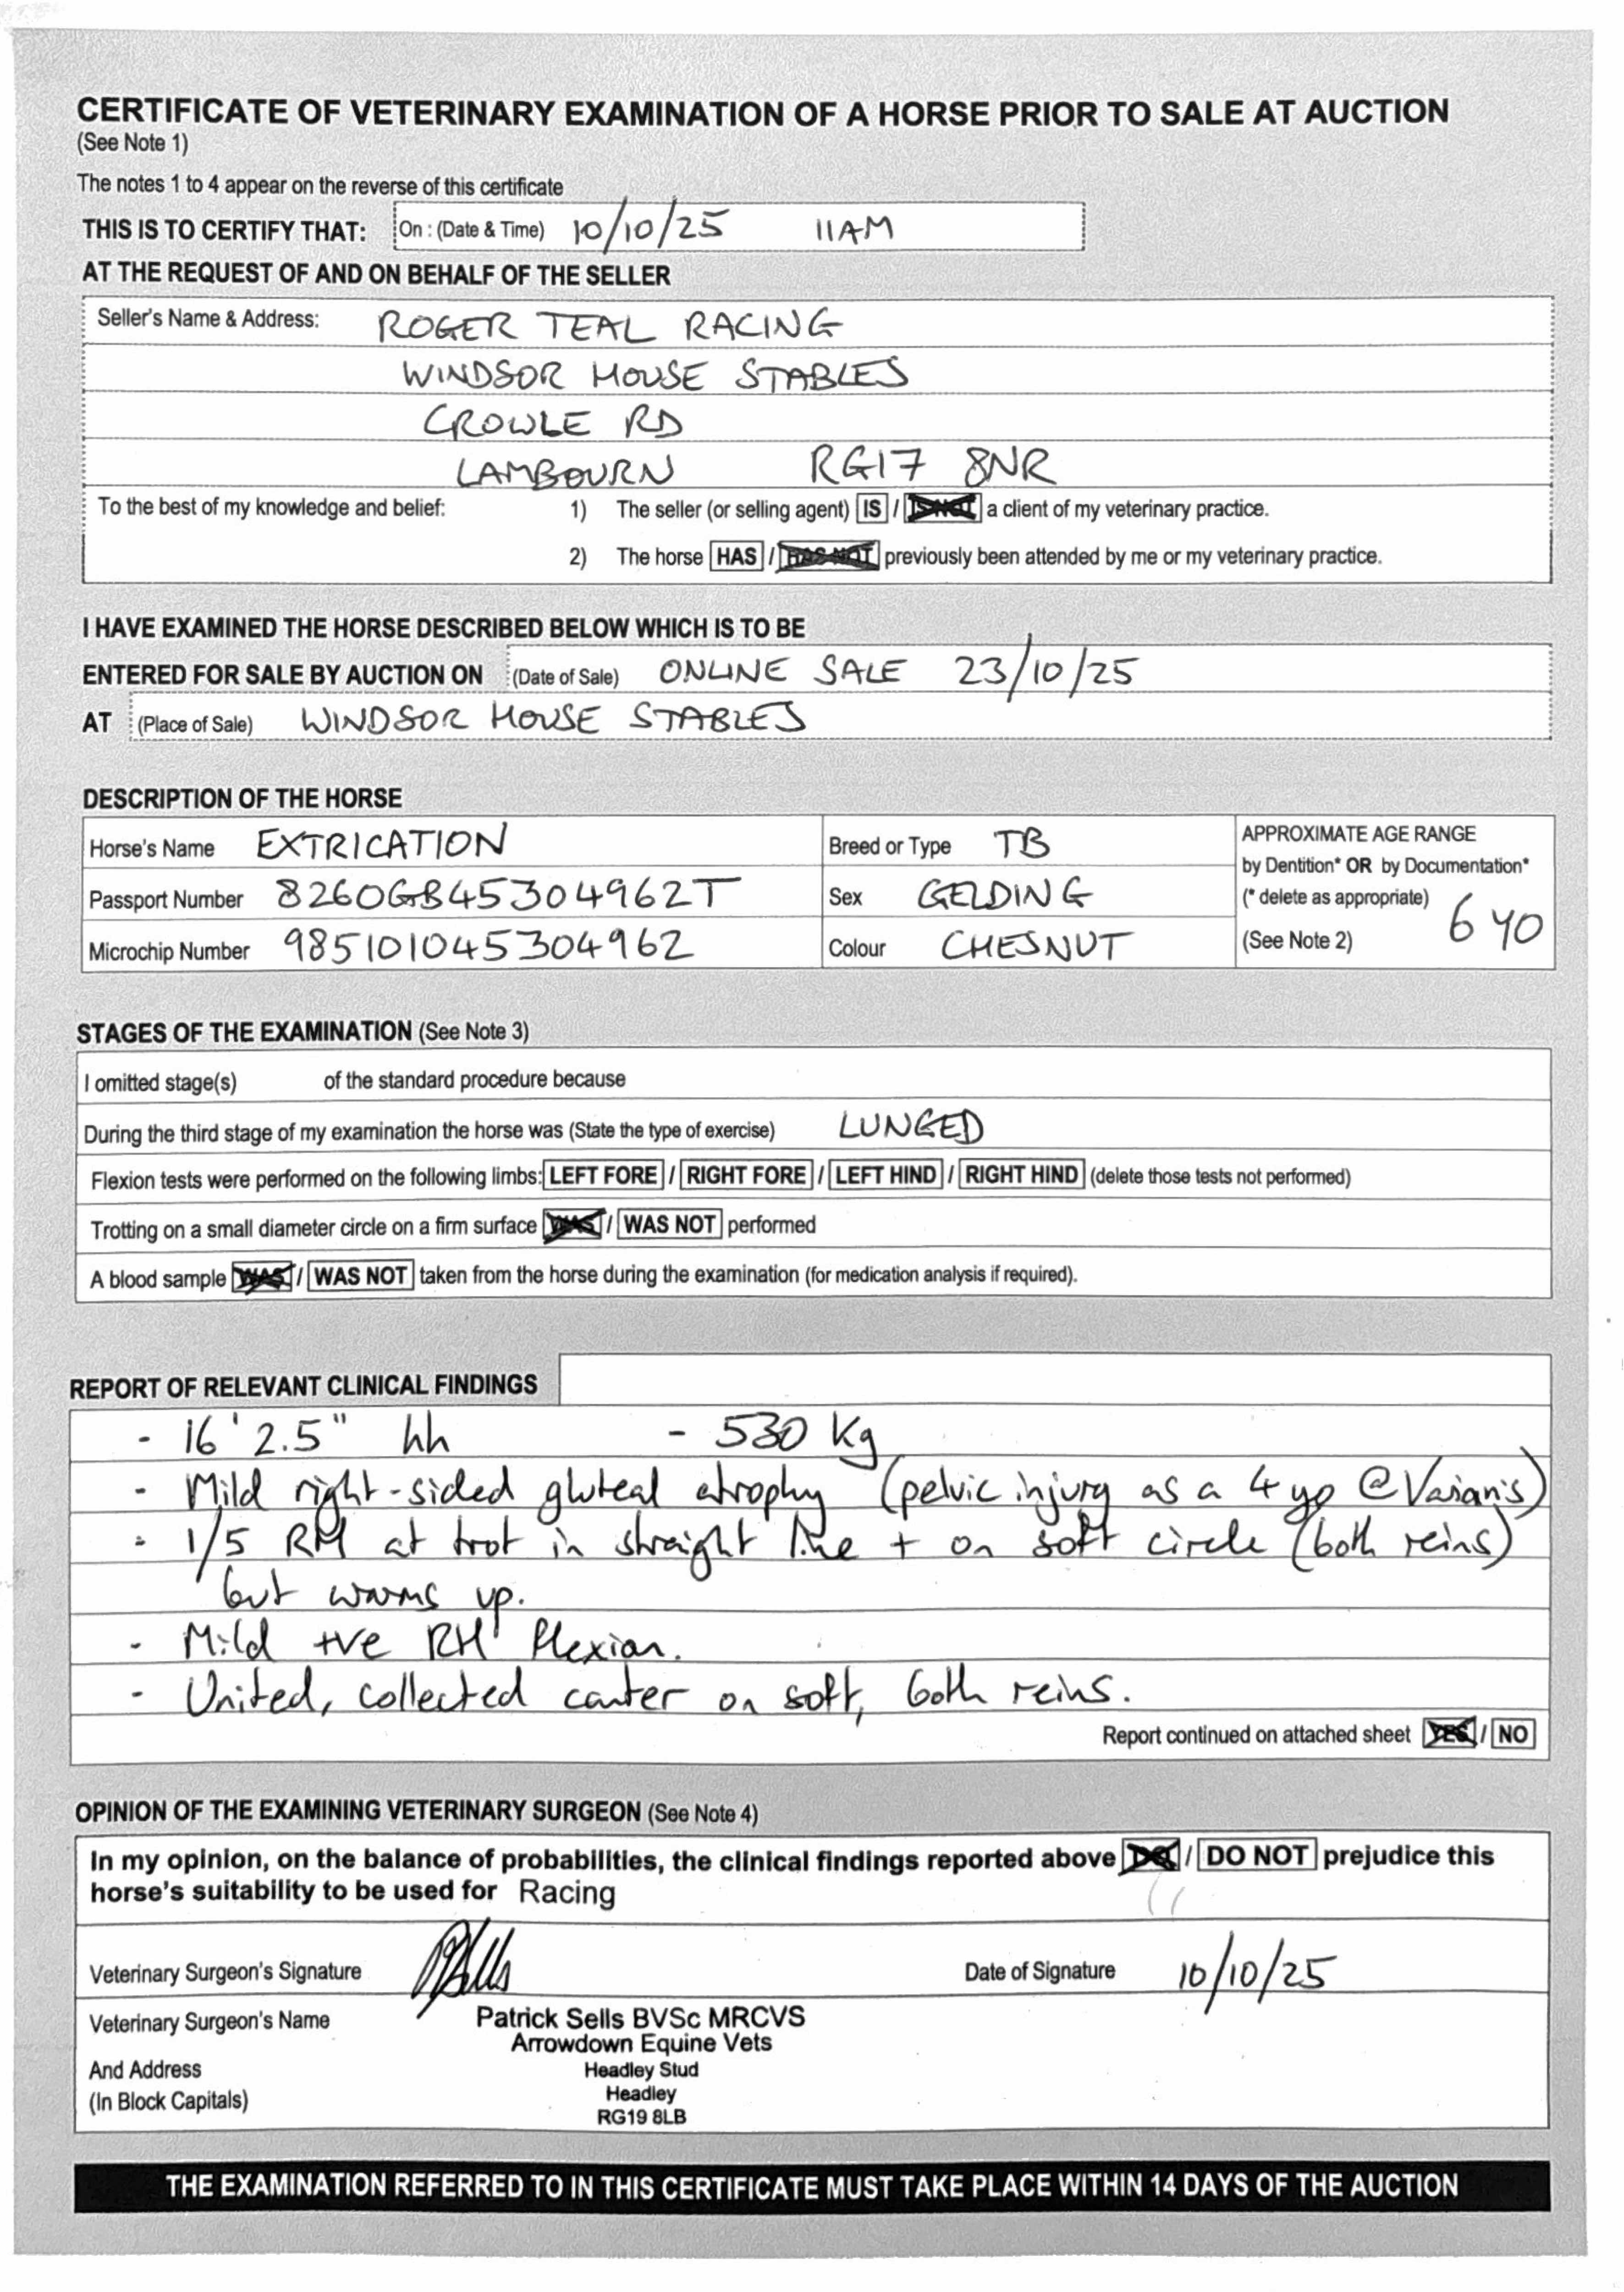 CERTIFICATE OF VETERINARY EXAMINATION OF A HORSE PRIOR TO SALE AT AUCTION
(See Note 1)
The notes 1 to 4 appear on the reverse of this certificate
THIS IS TO CERTIFY THAT: On : (Date & Time) 10/10/25 11AM
AT THE REQUEST OF AND ON BEHALF OF THE SELLER
Seller's Name & Address: ROGER TEAL RACING
WINDSOR HOUSE STABLES
CROWLE RD
LAMBOURN RG17 8NR
To the best of my knowledge and belief: 1) The seller (or selling agent) IS / IS NOT a client of my veterinary practice.
2) The horse HAS / HAS NOT previously been attended by me or my veterinary practice.
I HAVE EXAMINED THE HORSE DESCRIBED BELOW WHICH IS TO BE
ENTERED FOR SALE BY AUCTION ON (Date of Sale) ONLINE SALE 23/10/25
AT (Place of Sale) WINDSOR HOUSE STABLES
DESCRIPTION OF THE HORSE
Horse's Name EXTRICATION Breed or Type TB APPROXIMATE AGE RANGE
by Dentition* OR by Documentation*
Passport Number 8260GB45304962T Sex GELDING (* delete as appropriate) 6 YO
Microchip Number 985101045304962 Colour CHESNUT (See Note 2)
STAGES OF THE EXAMINATION (See Note 3)
I omitted stage(s) of the standard procedure because
During the third stage of my examination the horse was (State the type of exercise) LUNGED
Flexion tests were performed on the following limbs: LEFT FORE / RIGHT FORE / LEFT HIND / RIGHT HIND (delete those tests not performed)
Trotting on a small diameter circle on a firm surface WAS / WAS NOT performed
A blood sample WAS / WAS NOT taken from the horse during the examination (for medication analysis if required).
REPORT OF RELEVANT CLINICAL FINDINGS
- 16'2.5" hh - 530 Kg
- Mild right-sided gluteal atrophy (pelvic injury as a 4 yo @ Varian's)
- 1/5 RH at trot in straight line + on soft circle (both reins)
but warms up.
- Mild +ve RH flexion.
- United, collected canter on soft, both reins.
Report continued on attached sheet YES / NO
OPINION OF THE EXAMINING VETERINARY SURGEON (See Note 4)
In my opinion, on the balance of probabilities, the clinical findings reported above DO / DO NOT prejudice this
horse's suitability to be used for Racing
Veterinary Surgeon's Signature PSells Date of Signature 10/10/25
Veterinary Surgeon's Name Patrick Sells BVSc MRCVS
Arrowdown Equine Vets
And Address Headley Stud
(In Block Capitals) Headley
RG19 8LB
THE EXAMINATION REFERRED TO IN THIS CERTIFICATE MUST TAKE PLACE WITHIN 14 DAYS OF THE AUCTION